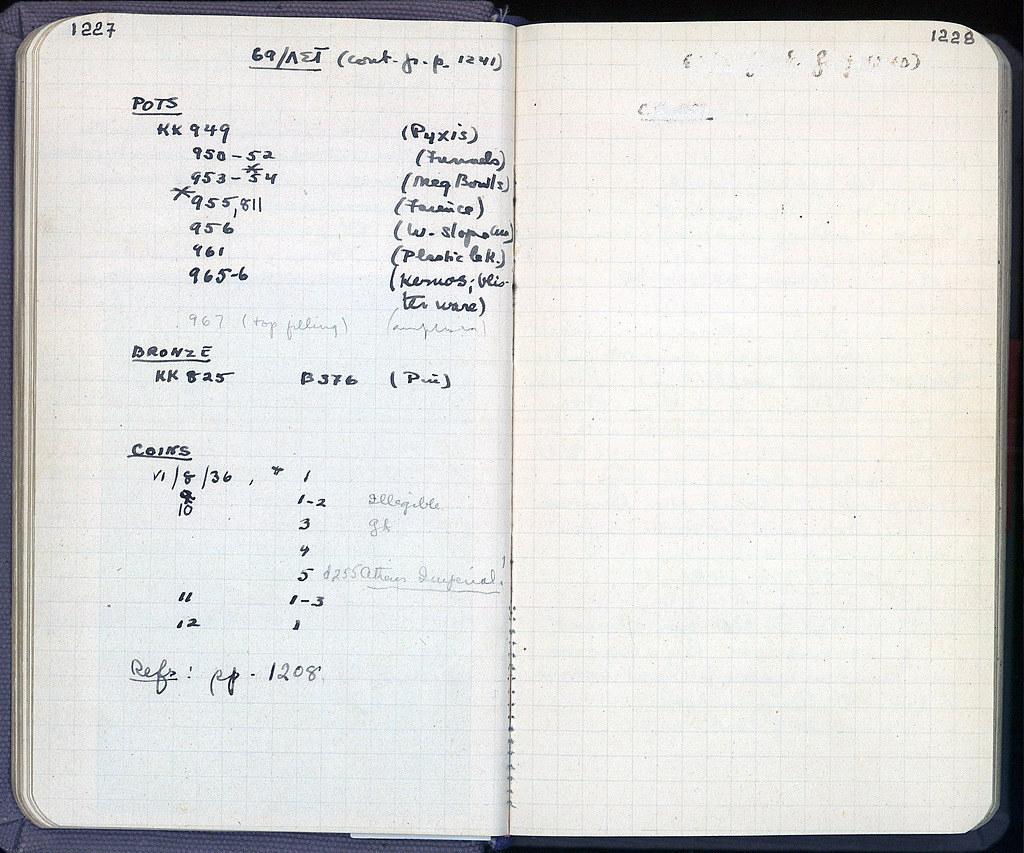 1227
69/ΛΣΤ (cont. fr. p. 1241)
POTS
KK 949 (Pyxis)
950-52 (Funnels)
953-54 (Meg Bowls)
*955, 811 (Faience)
956 (W. Slope
961 (Plastic lek.)
965-6 (Kernos; blis-
ter ware)
967 (top filling) (amphora)
BRONZE
KK 825 B376 (Pin)
COINS
VI/8/36, # 1
1-2 Illegible
10
3 gk
4
5 Athens Imperial
11 1-3
12 1
Refs: pp. 1208
1228